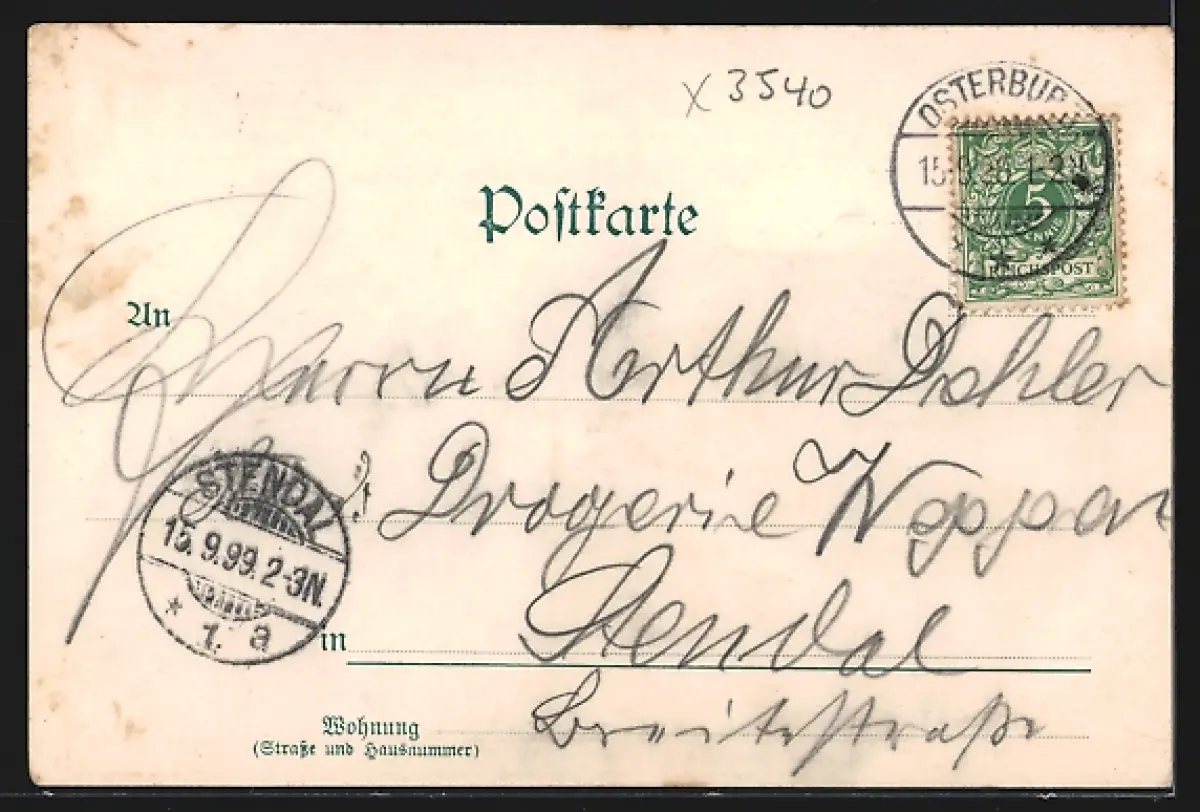 x 3540
OSTERBURG
15.9.99. 1-2N.
5
PFENNIG
REICHSPOST
Postkarte
An
Herrn Arthur Dähler
Drogerie
STENDAL
15.9.99.2-3N.
* 1. a
in Stendal
Breitestraße
Wohnung
(Straße und Hausnummer)